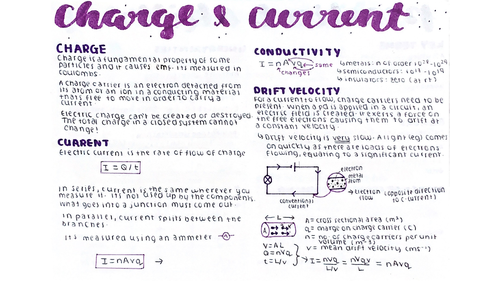 charge & current
CHARGE
Charge is a fundamental property of some
particles and it causes EMS. its measured in
coulombs.
A charge carrier is an electron detached from
its atom or an ion in a conducting material
thats free to move in order to carry a
current
Electric charge can't be created or destroyed
The total charge in a closed system cannot
change!
CURRENT
Electric current is the rate of flow of charge
I = Q/t
In series, current is the same wherever you
measure it. Its not used up by the components
what goes into a junction must come out.
In parallel, current splits between the
branches
Its measured using an ammeter -A-
I=nAvq →
CONDUCTIVITY
I = nAvq same
changes
↳ metals: n of order 10²⁸-10²⁹
↳ semiconductors:
↳ insulators: zero (at rt)
DRIFT VELOCITY
For a current to flow, charge carriers need to be
present. When a pd is applied in a circuit, an
electric field is created. It exerts a force on
the free electrons causing them to drift at
a constant velocity.
↳ Drift velocity is very slow. A light (eg) comes
on quickly as there are loads of electrons
flowing, equating to a significant current.
electron
metal
atom
→ Electron flow (opposite direction
to C. current)
conventional
current
← L →
A
V=AL
Q=nqV
t=L/v
I = nVq / L/v = nVqv / L = nAvq
A= cross sectional area (m²)
q= charge on charge carrier (C)
n= no. of charge carriers per unit
volume (m⁻³)
v= mean drift velocity (ms⁻¹)